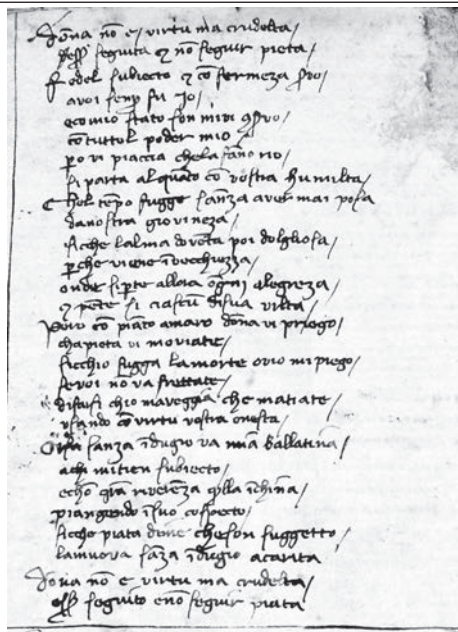 Dona nō e virtu ma crudelta/
seguita & nō seguir pieta/
Fedel subiecto & cō fermeza
avoi senp fu Io/
ecomio stato son
cō tuttol poder mio
po vi piaccia chela
si parta alquāto cō vostra humilta/
E chol tēpo fugge sanza aver mai posa
da nostra giovineza/
sicche lalma doventa poi dolgliosa/
p̄che viene īvecchiezza/
onde allora ōgni alegreza/
& si ciascū disua vilta/
Pero cō piāto amaro dōna vi priego/
cha pieta vi moviate/
sicchio fugga lamorte ovio mi piego/
se voi nō va frettate/
chio maveggia che matiate/
usando cō virtu vostra onesta/
Or sanza īdugio va mia ballatina/
achi mitien subiecto/
echō grā riverēza īchina/
piangendo īsuo cospecto/
sicche piata cheson suggetto/
lamuova sāza īdugio a carita
Dona nō e virtu ma crudelta/
seguito enō seguir piata